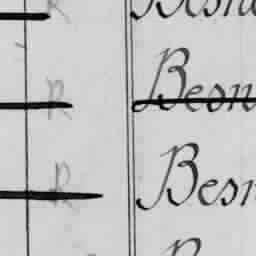 R Besn
R Besn
R Besn